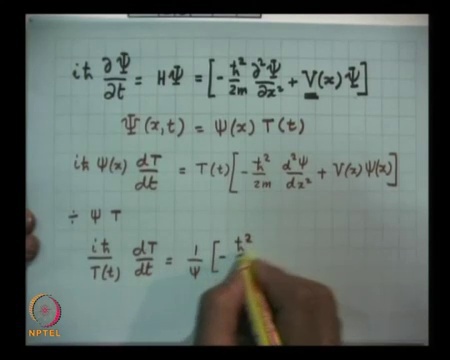 iħ ∂Ψ/∂t = HΨ = [-ħ²/2m ∂²Ψ/∂x² + V(x)Ψ]
Ψ(x,t) = ψ(x) T(t)
iħ ψ(x) dT/dt = T(t)[-ħ²/2m d²ψ/dx² + V(x)ψ(x)]
÷ ψ T
iħ/T(t) dT/dt = 1/ψ [-ħ²
NPTEL